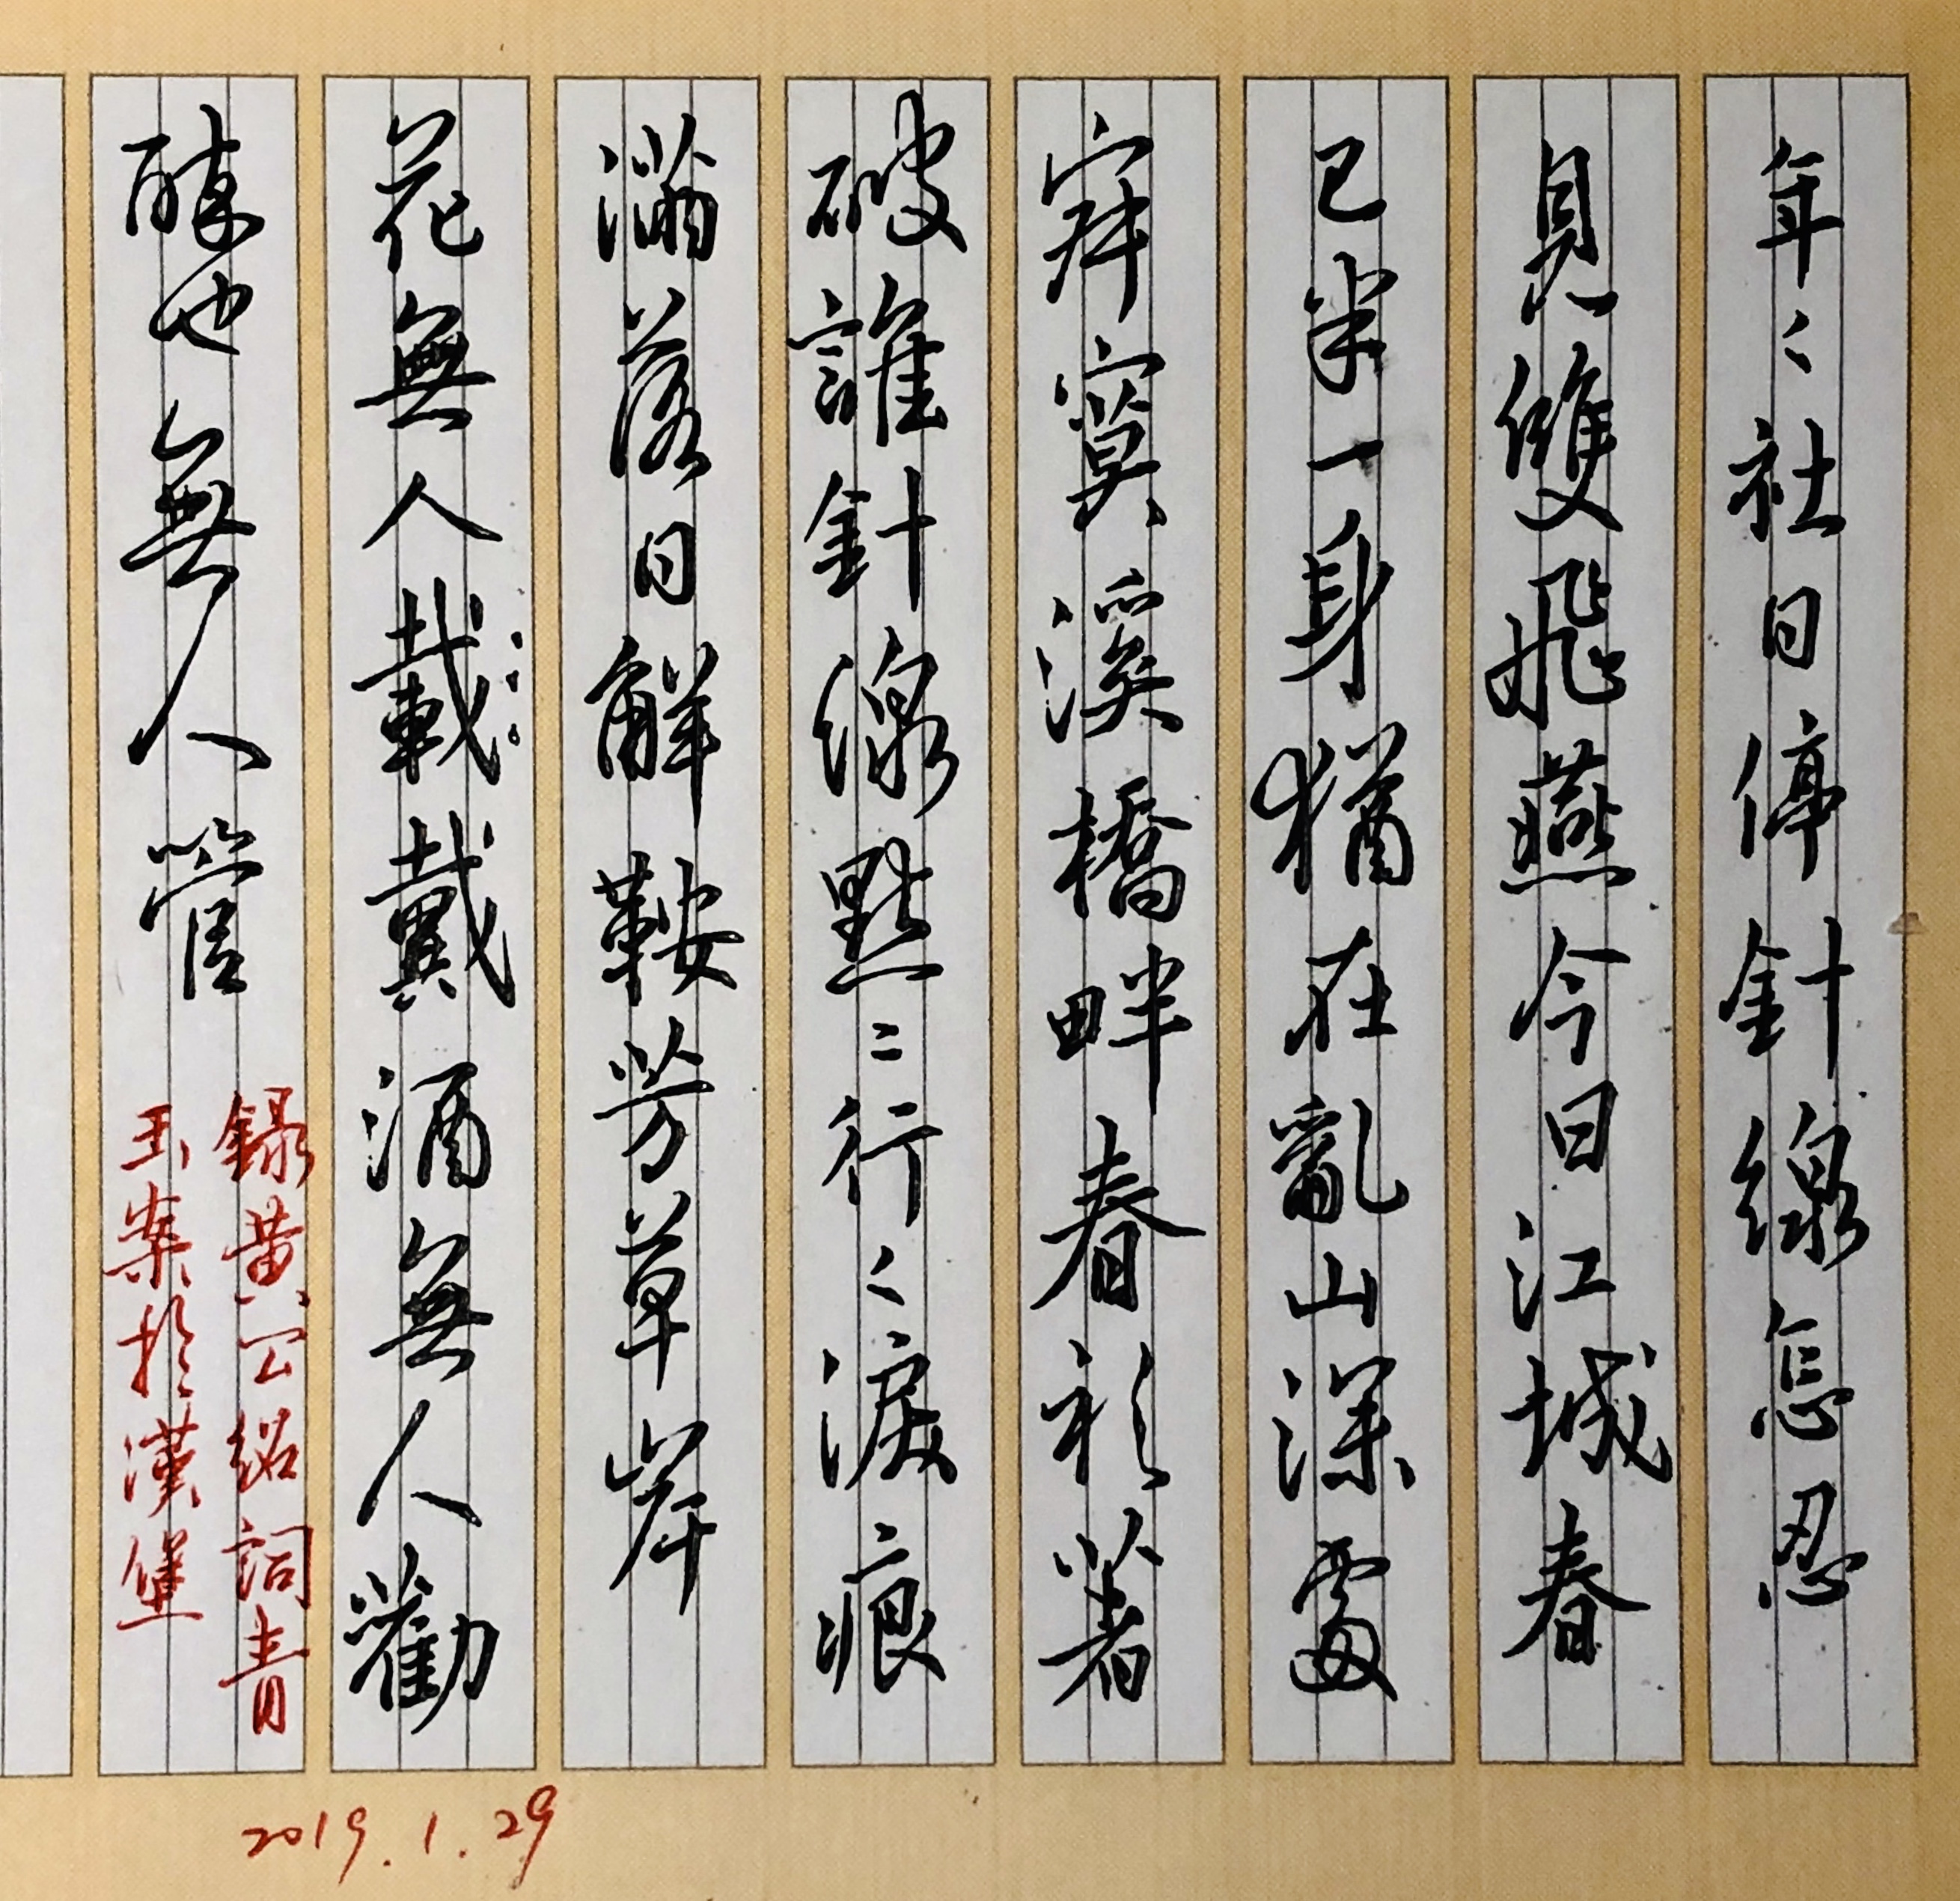 年〻社日停針線怎忍
見雙飛燕今日江城春
已半一身猶在亂山深處
寂寞溪橋畔春衫著
破誰針線點〻行〻淚痕
滿落日解鞍芳草岸
花無人載戴酒無人勸
醉也無人管
錄黃公紹詞青
玉案於漢堡
2019.1.29